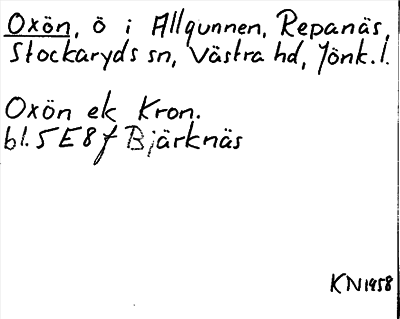 Oxön, ö i Allgunnen, Repanäs,
Stockaryds sn, Västra hd, Jönk.l.
Oxön ek Kron.
bl. 5 E 8 f Bjärknäs
KN 1958